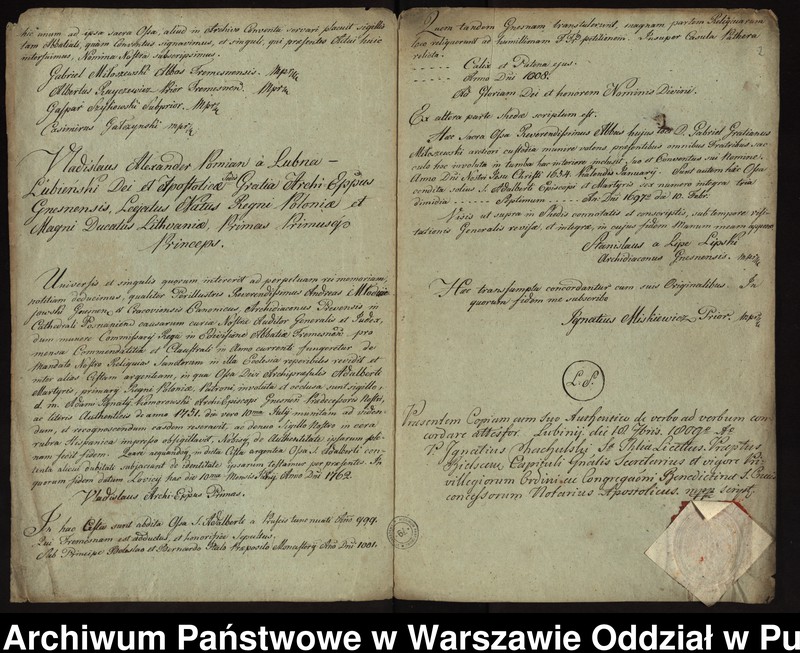 hic unum ad ipsa sacra Ossa, aliud in Archivo Conventus servari placuit sigillo
tam Abbatiali, quam Conventus signavimus, et singuli, qui praesentes Actui huic
interfuimus, Nomina Nostra subscripsimus.
Gabriel Miloszewski Abbas Tremesnensis. mpria
Albertus Prior Tremesnen. Mpria
Gaspar Szyszkowski Subprior. Mpria
Casimirus Gałczynski mpria
Vladislaus Alexander Pomian à Lubna –
Łubienski Dei et Apostolicae Sedis Gratia Archi-Eppus
Gnesnensis, Legatus Natus Regni Poloniae et
Magni Ducatus Lithvaniae Primas Primusq
Princeps.
Universis et singulis quorum intererit ad perpetuam rei memoriam,
notitiam deducimus, qualiter Perillustris Reverendissimus Andreas
Gnesnen. et Cracoviensis Canonicus, Archidiaconus Pscevensis in
Cathedrali Posnanien causarum curiae Nostrae Auditor Generalis et Judex,
dum munere Commissarij Regii in Divisione Abbatiae Tremesnen. pro
mensa Commendatitia et Claustrali in Anno currenti fungeretur de
Mandato Nostro Reliquias Sanctorum in illa Ecclesia reperibiles revidit et
inter alias Cistam argenteam, in qua Ossa Divi Archipraesulis Adalberti
Martyris, primarij Regni Poloniae Patroni, involuta et occlusa sunt sigillo,
d. m. Adami Ignatij Komorowski ArchiEpiscopi Gnesnen Praedecessoris Nostri,
ac literis Authenticis de anno 1751. die vero 10ma Julij munitam ad viden-
dum, et recognoscendum easdem reseravit, ac denuo Sigillo Nostro in cera
rubra Hispanica impresso obsigillavit, Nobisq de Authenticitate ipsarum ple-
nam fecit fidem. Quare nequando in dicta Cista argentea Ossa S. Adalberti con-
tenta alicui dubitati subjaceant de identitate ipsarum testamur per praesentes. In
quorum fidem datum Lovicij die 10ma Mensis Anno Dni 1762.
Vladislaus Archi-Eppus Primas.
In hac Cista sunt abdita Ossa S. Adalberti a Prussis trucidati Ano 999.
Qui Tremesnam est adductus, et honorifice Sepultus.
Sub Principe Boleslao et Bernardo Italo Praeposito Monasterij Ano Dni 1001.
Quem tandem Gnesnam transtulerunt, magnam partem Reliquiarum
hic reliquerunt ad humillimam petitionem. Insuper Casula
relicta.
. . . . . . Calix et Patena ejus.
. . . . . . Anno Dni 1008.
Ad Gloriam Dei et honorem Nominis Divini.
Ex altera parte shedae scriptum est.
Haec sacra Ossa Reverendissimus Abbas hujus loci D. Gabriel Gratianus
Miloszewski arctiori custodia munire volens praesentibus omnibus Fratribus sac-
culo hoc involuta in tumba hac interiore inclusit, suo et Conventus sui Nomine.
Anno Dni Nostri Jesu Christi 1634. Kalendis Januarij. Sunt autem haec Ossa
condita solius S. Adalberti Episcopi et Martyris sex numero integra tria
dimidia . . . . . . . Septimum . . . . . An: Dni 1697 2 die 10. Febr.
Visis ut supra in Shedis connotatis et conscriptis, sub tempore visi-
tationis Generalis revisae et integrae, in cujus fidem Manum meam appono.
Stanislaus a Lipe Lipski
Archidiaconus Gnesnensis. mpria
Haec transumpta concordantur cum suis Originalibus. In
quorum fidem me subscribo
Ignatius Miskiewicz Prior. mpria
L. S.
Praesentem Copiam cum Suo Authentico de verbo ad verbum con-
cordare attestor. Lubinij die 18 1809o Ao
P. Ignatius Sta Thlia Licttus, Praeptus
Capituli Gnalis Secretarius et vigore Pri-
villegiorum Ordini seu Congregaoni Benedictinae S. Crucis
concessorum Notarius Apostolicus. mpr script.
2
Archiwum Państwowe w Warszawie Oddział w Pu